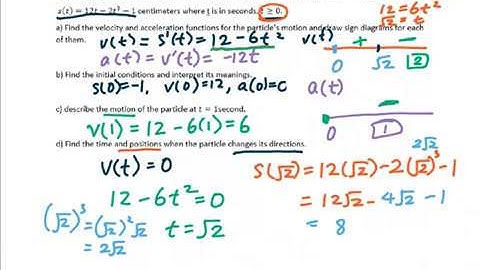 s(t) = 12t − 2t³ − 1 centimeters where t is in seconds, t ≥ 0.
12 = 6t²
√2 = t
a) Find the velocity and acceleration functions for the particle's motion and draw sign diagrams for each
of them. v(t) = s'(t) = 12 - 6t²
v(t) + −
0 √2 2
a(t) = v'(t) = -12t
b) Find the initial conditions and interpret its meanings.
s(0) = -1, v(0) = 12, a(0) = 0
a(t) −
0 1
c) describe the motion of the particle at t = 1second.
v(1) = 12 - 6(1) = 6
d) Find the time and positions when the particle changes its directions.
2√2
v(t) = 0
s(√2) = 12(√2) - 2(√2)³ - 1
12 - 6t² = 0
= 12√2 - 4√2 - 1
(√2)³ = (√2)²√2
t = √2
= 8
= 2√2